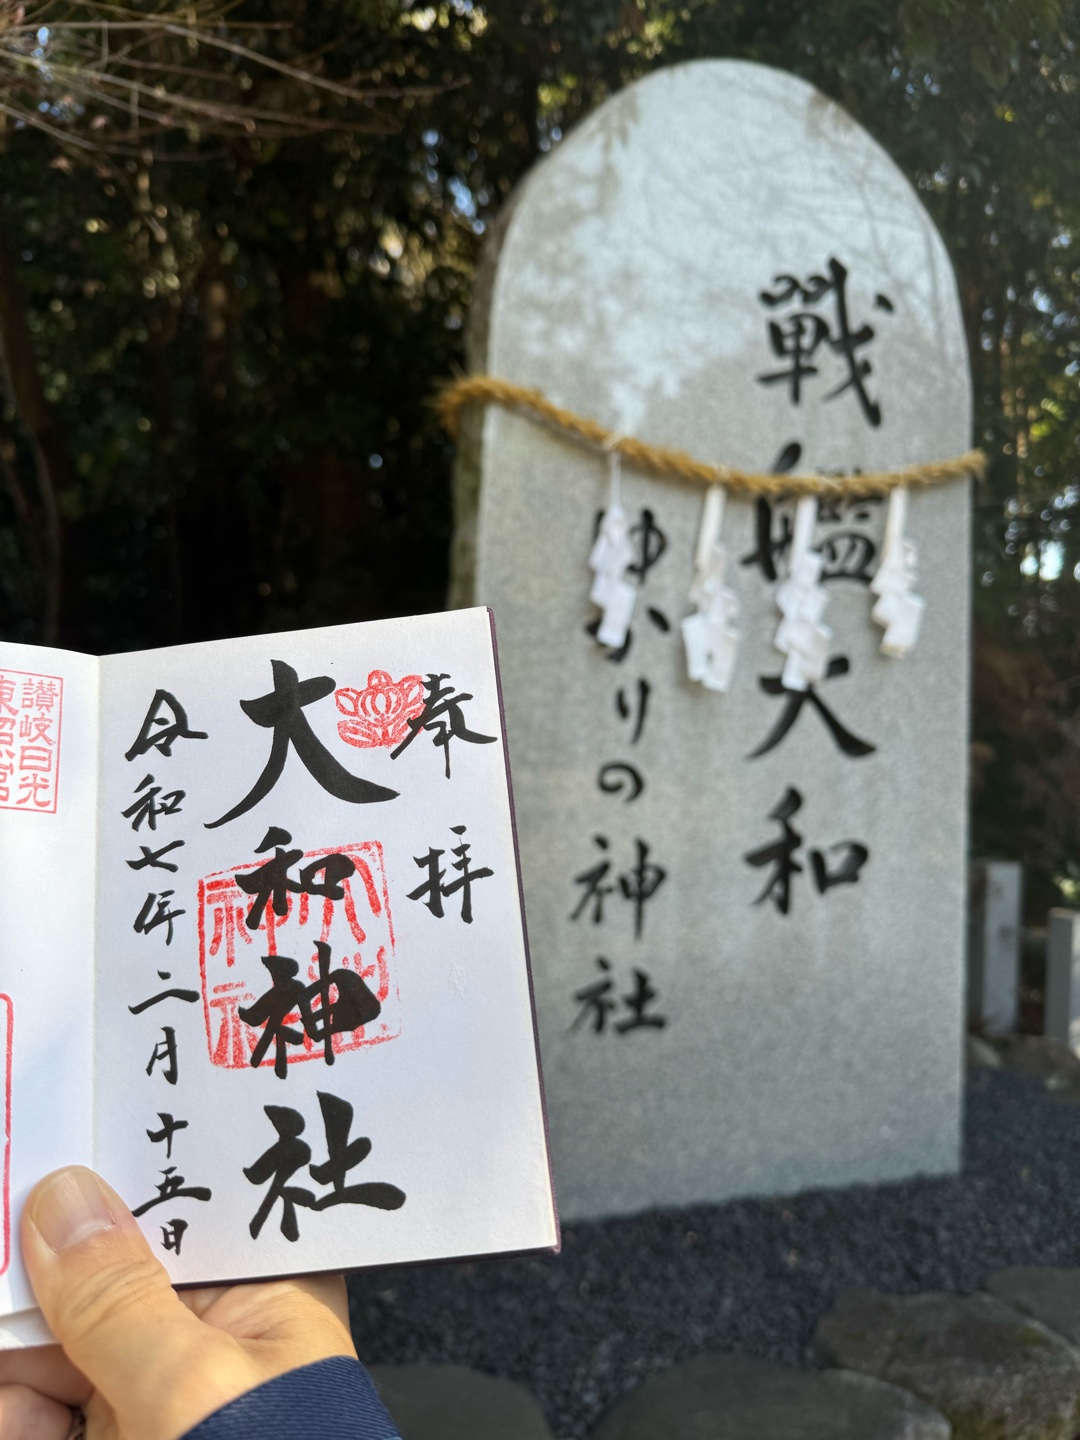 奉拝
大和神社
令和七年二月十五日
讃岐日光
東照宮
戰艦大和
ゆかりの神社